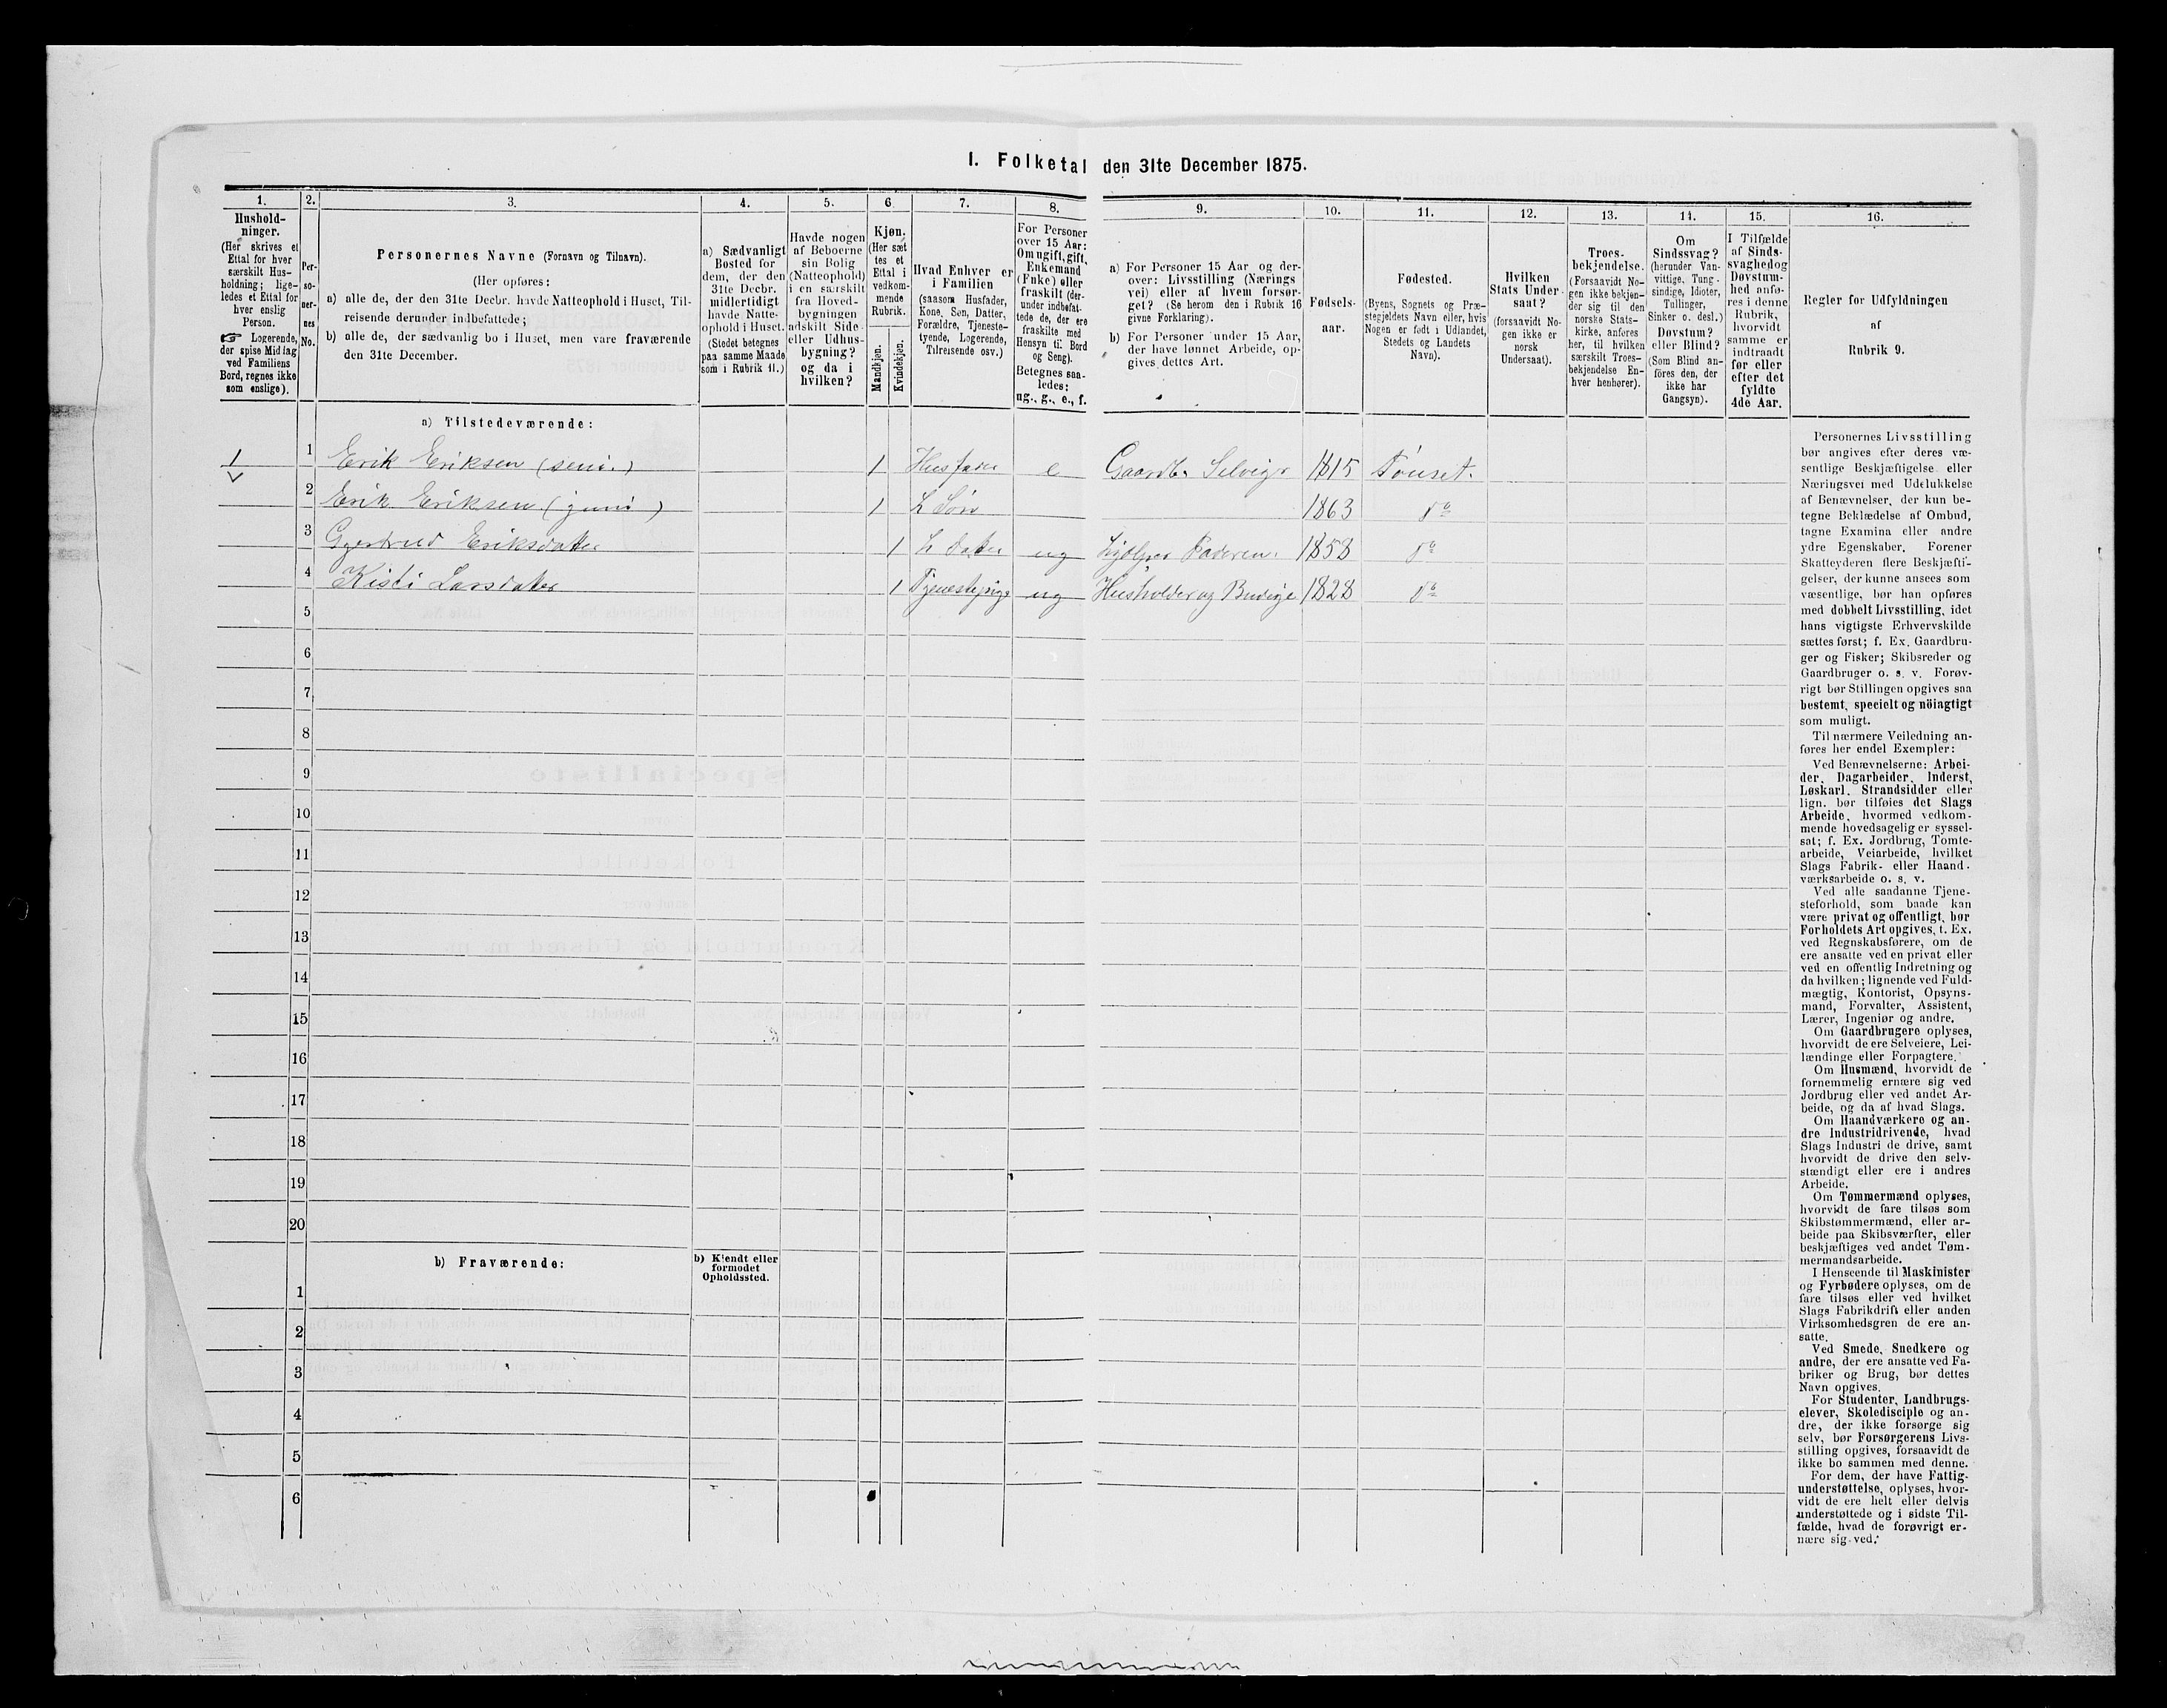 I. Folketal den 31te December 1875.
1.
Hushold-
ninger.
(Her skrives et
Ettal for hver
særskilt Hus-
holdning; lige-
ledes et Ettal for
hver enslig
Person.
☞ Logerende,
der spise Middag
ved Familiens
Bord, regnes ikke
som enslige).
2.
Per-
so-
ner-
nes
No.
3.
Personernes Navne (Fornavn og Tilnavn).
(Her opføres:
a) alle de, der den 31te Decbr. havde Natteophold i Huset, Til-
reisende derunder indbefattede;
b) alle de, der sædvanlig bo i Huset, men vare fraværende
den 31te December.
4.
a) Sædvanligt
Bosted for
dem, der den
31te Decbr.
midlertidigt
havde Natte-
ophold i Huset.
(Stedet betegnes
paa samme Maade
som i Rubrik 11.)
5.
Havde nogen
af Beboerne
sin Bolig
(Natteophold)
i en særskilt
fra Hoved-
bygningen
adskilt Side-
eller Udhus-
bygning?
og da i
hvilken?
6.
Kjøn.
(Her sæt
tes et
Ettal i
vedkom-
mende
Rubrik.
Mandkjøn.
Kvindekjøn.
7.
Hvad Enhver er
i Familien
(saasom Husfader,
Kone, Søn, Datter,
Forældre, Tjeneste-
tyende, Logerende,
Tilreisende osv.)
8.
For Personer
over 15 Aar:
Om ugift, gift,
Enkemand
(Enke) eller
fraskilt (der-
under indbefat-
tede de, der ere
fraskilte med
Hensyn til Bord
og Seng).
Betegnes saa-
ledes:
ug., g., e., f.
9.
a) For Personer 15 Aar og der-
over: Livsstilling (Nærings
vei) eller af hvem forsør-
get? (Se herom den i Rubrik 16
givne Forklaring).
b) For Personer under 15 Aar,
der have lønnet Arbeide, op-
gives dettes Art.
10.
Fødsels-
aar.
11.
Fødested.
(Byens, Sognets og Præ-
stegjeldets Navn eller, hvis
Nogen er født i Udlandet,
Stedets og Landets
Navn).
12.
Hvilken
Stats Under-
saat?
(forsaavidt No-
gen ikke er
norsk
Undersaat).
13.
Troes-
bekjendelse.
(Forsaavidt No-
gen ikke bekjen-
der sig til den
norske Stats-
kirke, anføres
her, til hvilken
særskilt Troes-
bekjendelse En-
hver henhører).
14.
Om
Sindssvag?
(herunder Van-
vittige, Tung-
sindige, Idioter,
Tullinger,
Sinker o. desl.)
Døvstum?
eller Blind?
(Som Blind an-
føres den, der
ikke har
Gangsyn).
15.
I Tilfælde
af Sinds-
svaghed og
Døvstum-
hed anfø-
res i denne
Rubrik,
hvorvidt
samme er
indtraadt
før eller
efter det
fyldte
4de Aar.
16.
Regler for Udfyldningen
af
Rubrik 9.
a) Tilstedeværende:
1 1 Erik Eriksen (seni.) 1 Husfader e Gaardb. Selveier 1815 Tönset.
2 Erik Eriksen (juni) 1 Sön 1863 do
3 Gjertrud Eriksdatter 1 Datter ug hjælper Faderen. 1858 do
4 Kisti Larsdatter 1 Tjenestepige ug Husholder og Budeje 1828 do
5
6
7
8
9
10
11
12
13
14
15
16
17
18
19
20
b) Fraværende:
b) Kjendt eller
formodet
Opholdssted.
1
2
3
4
5
6
Personernes Livsstilling
bør angives efter deres væ-
sentlige Beskjæftigelse eller
Næringsvei med Udelukkelse
af Benævnelser, der kun be-
tegne Beklædelse af Ombud,
tagne Examina eller andre
ydre Egenskaber. Forener
Skatteyderen flere Beskjæfti-
gelser, der kunne ansees som
væsentlige, bør han opføres
med dobbelt Livsstilling, idet
hans vigtigste Erhvervskilde
sættes først; f. Ex. Gaardbru-
ger og Fisker; Skibsreder og
Gaardbruger o. s. v. Forøv-
rigt bør Stillingen opgives saa
bestemt, specielt og nöiagtigt
som muligt.
Til nærmere Veiledning an-
føres her endel Exempler:
Ved Benævnelserne: Arbei-
der, Dagarbeider, Inderst,
Løskarl, Strandsidder eller
lign. bør tilføies det Slags
Arbeide, hvormed vedkom-
mende hovedsagelig er syssel-
sat; f. Ex. Jordbrug, Tomte-
arbeide, Veiarbeide, hvilket
Slags Fabrik- eller Haand-
værksarbeide o. s. v.
Ved alle saadanne Tjene-
steforhold, som baade kan
være privat og offentligt, bør
Forholdets Art opgives, t. Ex.
ved Regnskabsførere, om de
ere ansatte ved en privat eller
ved en offentlig Indretning og
da hvilken; lignende ved Fuld-
mægtig, Kontorist, Opsyns-
mand, Forvalter, Assistent,
Lærer, Ingeniør og andre.
Om Gaardbrugere oplyses,
hvorvidt de ere Selveiere, Lei-
lændinge eller Forpagtere.
Om Husmænd, hvorvidt de
fornemmelig ernære sig ved
Jordbrug eller ved andet Ar-
beide, og da af hvad Slags.
Om Haandværkere og an-
dre Industridrivende, hvad
Slags Industri de drive, samt
hvorvidt de drive den selv-
stændigt eller ere i andres
Arbeide.
Om Tømmermænd oplyses,
hvorvidt de fare tilsøs som
Skibstømmermænd, eller ar-
beide paa Skibsværfter, eller
beskjæftiges ved andet Tøm-
mermandsarbeide.
I Henseende til Maskinister
og Fyrbødere oplyses, om de
fare tilsøs eller ved hvilket
Slags Fabrikdrift eller anden
Virksomhedsgren de ere an-
satte.
Ved Smede, Snedkere og
andre, der ere ansatte ved Fa-
briker og Brug, bør dettes
Navn opgives.
For Studenter, Landbrugs-
elever, Skoledisciple og an-
dre, der ikke forsørge sig
selv, bør Forsørgerens Livs-
stilling opgives, forsaavidt de
ikke bo sammen med denne.
For dem, der have Fattig-
understøttelse, oplyses, hvor-
vidt de ere helt eller delvis
understøttede og i sidste Til-
fælde, hvad de forøvrigt er-
nære sig ved.